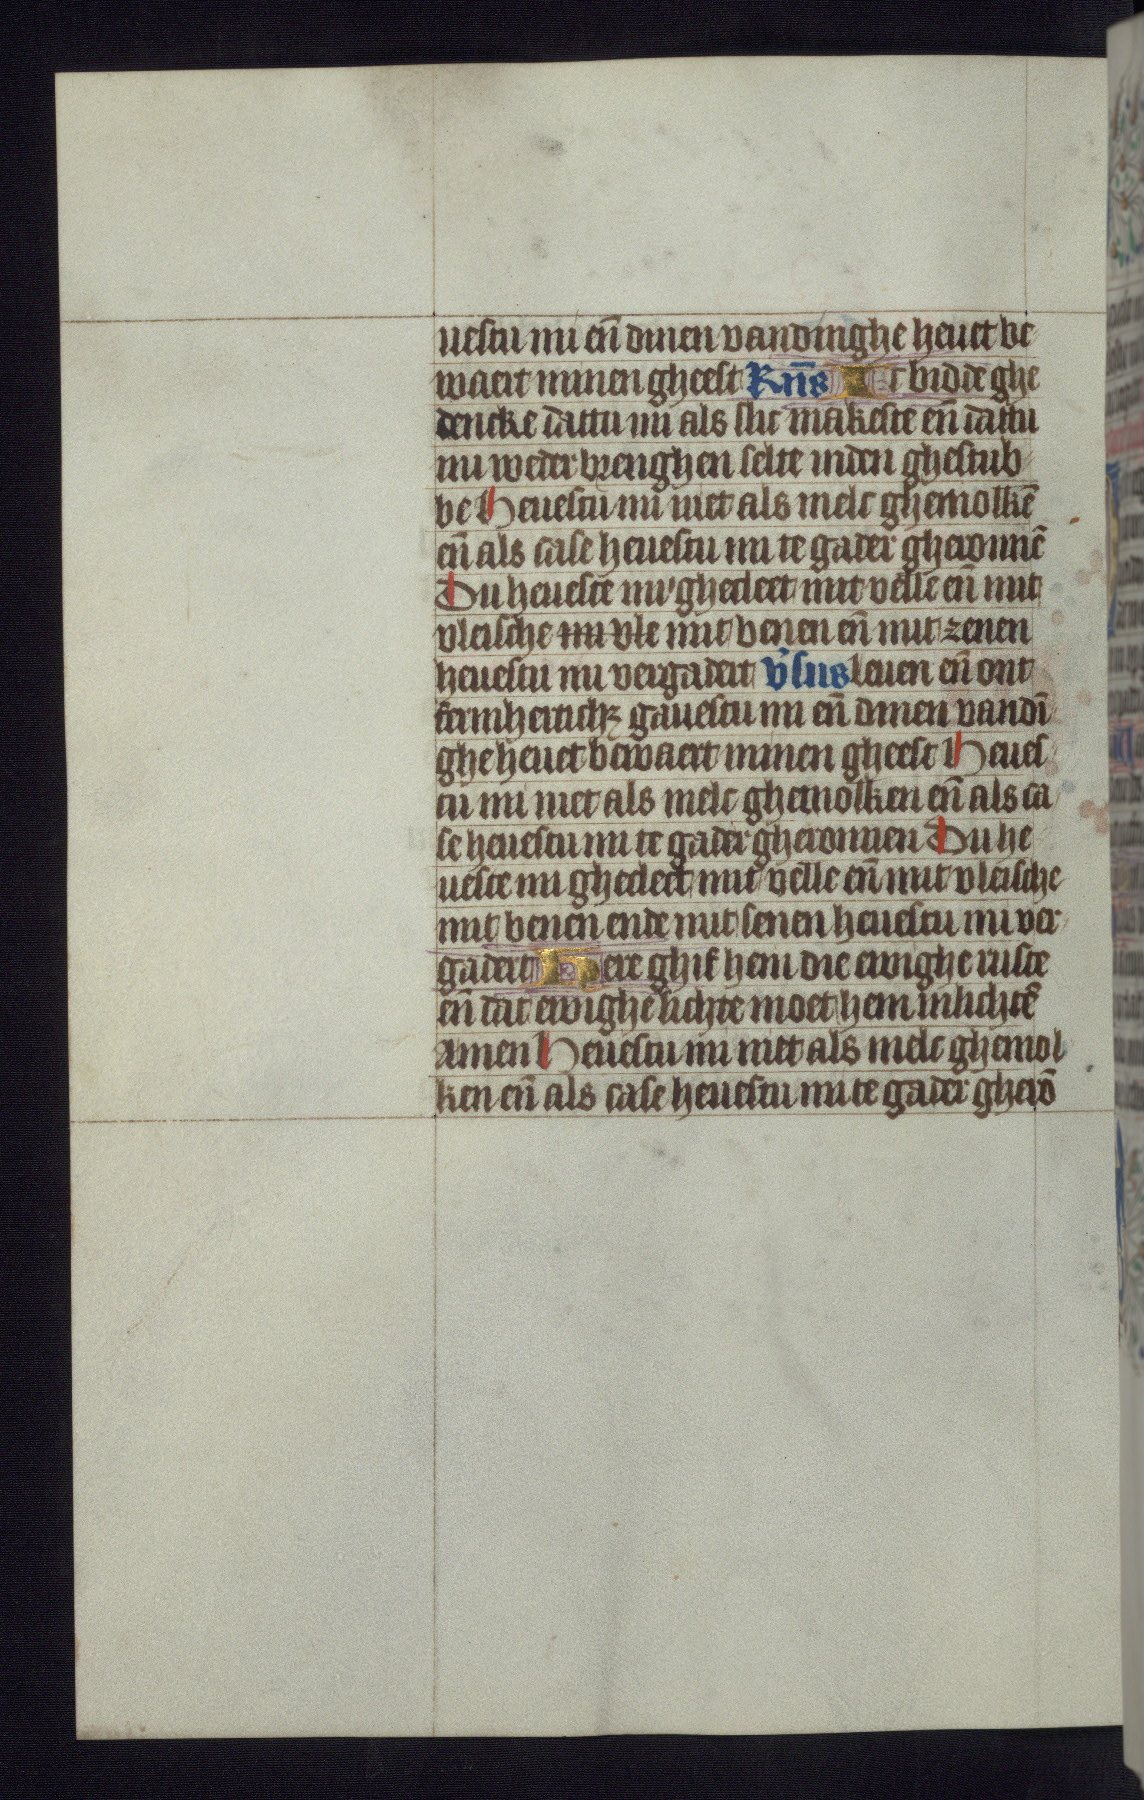 uestu mi en̄ dinen vandinghe heuet be
waert minen gheest Rn̄s Ic bidde ghe
dencke dattu mi als slic makeste en̄ dattu
mi weder brenghen selte inden ghestub
be Heuestu mi niet als melc ghemolkē
en̄ als case heuestu mi te gader gheronnē
Du heueste mi ghedect mit velle en̄ mit
vleische mi vle mit benen en̄ mit zenen
heuestu mi vergadert v̉sus leuen en̄ ont
fermherticħ gauestu mi en̄ dinen vandī
ghe heuet bewaert minen gheest Heues
tu mi niet als melc ghemolken en̄ als ca
se heuestu mi te gader gheronnen Du he
ueste mi ghedect mit velle en̄ mit vleische
mit benen ende mit senen heuestu mi ver
gadert Here ghif hem die ewighe ruste
en̄ dat ewighe lichte moet hem inlichtē
Amen Heuestu mi niet als melc ghemol
ken en̄ als case heuestu mi te gader gherō